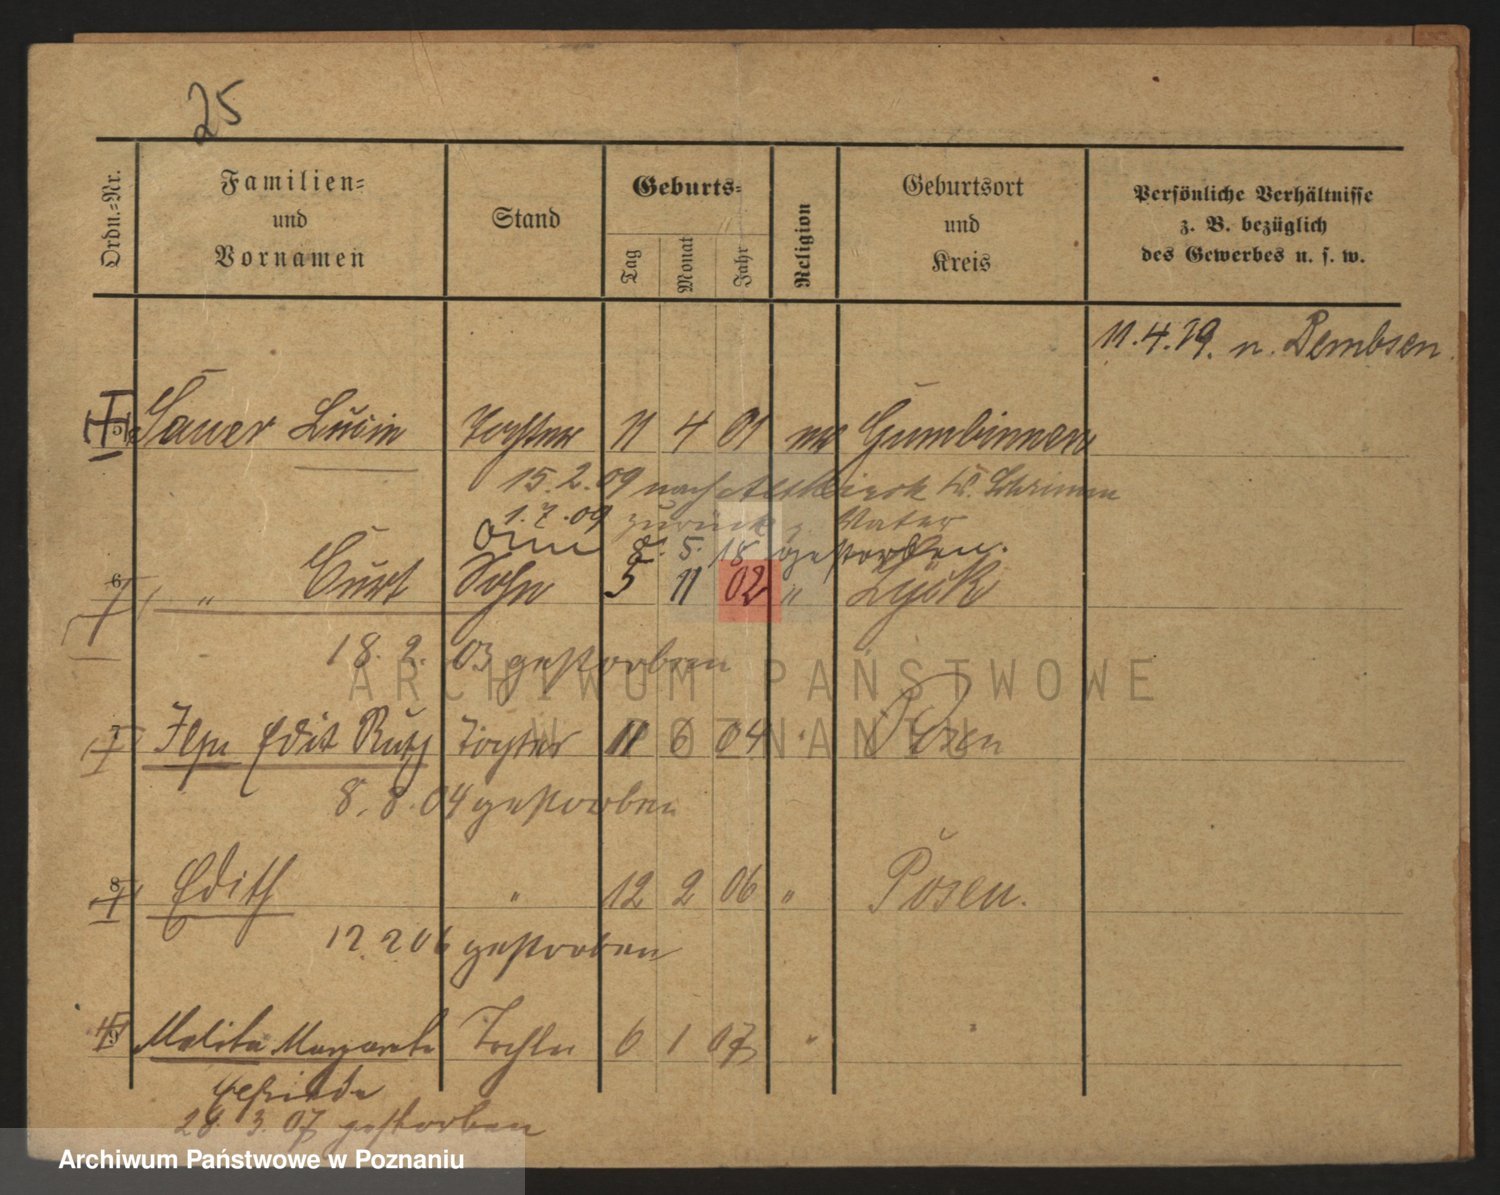 25
Ordn.-Nr.
Familien- und Vornamen
Stand
Geburts-
Tag Monat Jahr
Religion
Geburtsort und Kreis
Persönliche Verhältnisse z. B. bezüglich des Gewerbes u. s. w.
11.4.19. n. Dembsen
5 Sauer Lucie Tochter 11 4 01 ev Gumbinnen
15.2.09 nach Kr. Schrimm
1.7.09 zurück z. Vater
8. 5. 18 gestorben.
6 " Curt Sohn 5 11 02 " Lyck
18. 2. 03 gestorben
ARCHIWUM PAŃSTWOWE
W POZNANIU
7 Edit Ruth Tochter 11 6 04 " Posen
8. 8. 04 gestorben
8 Edith " 12 2 06 " Posen.
12 2 06 gestorben
9 Melita Margarete Tochter 6 1 07 " "
28. 3. 07 gestorben
Archiwum Państwowe w Poznaniu